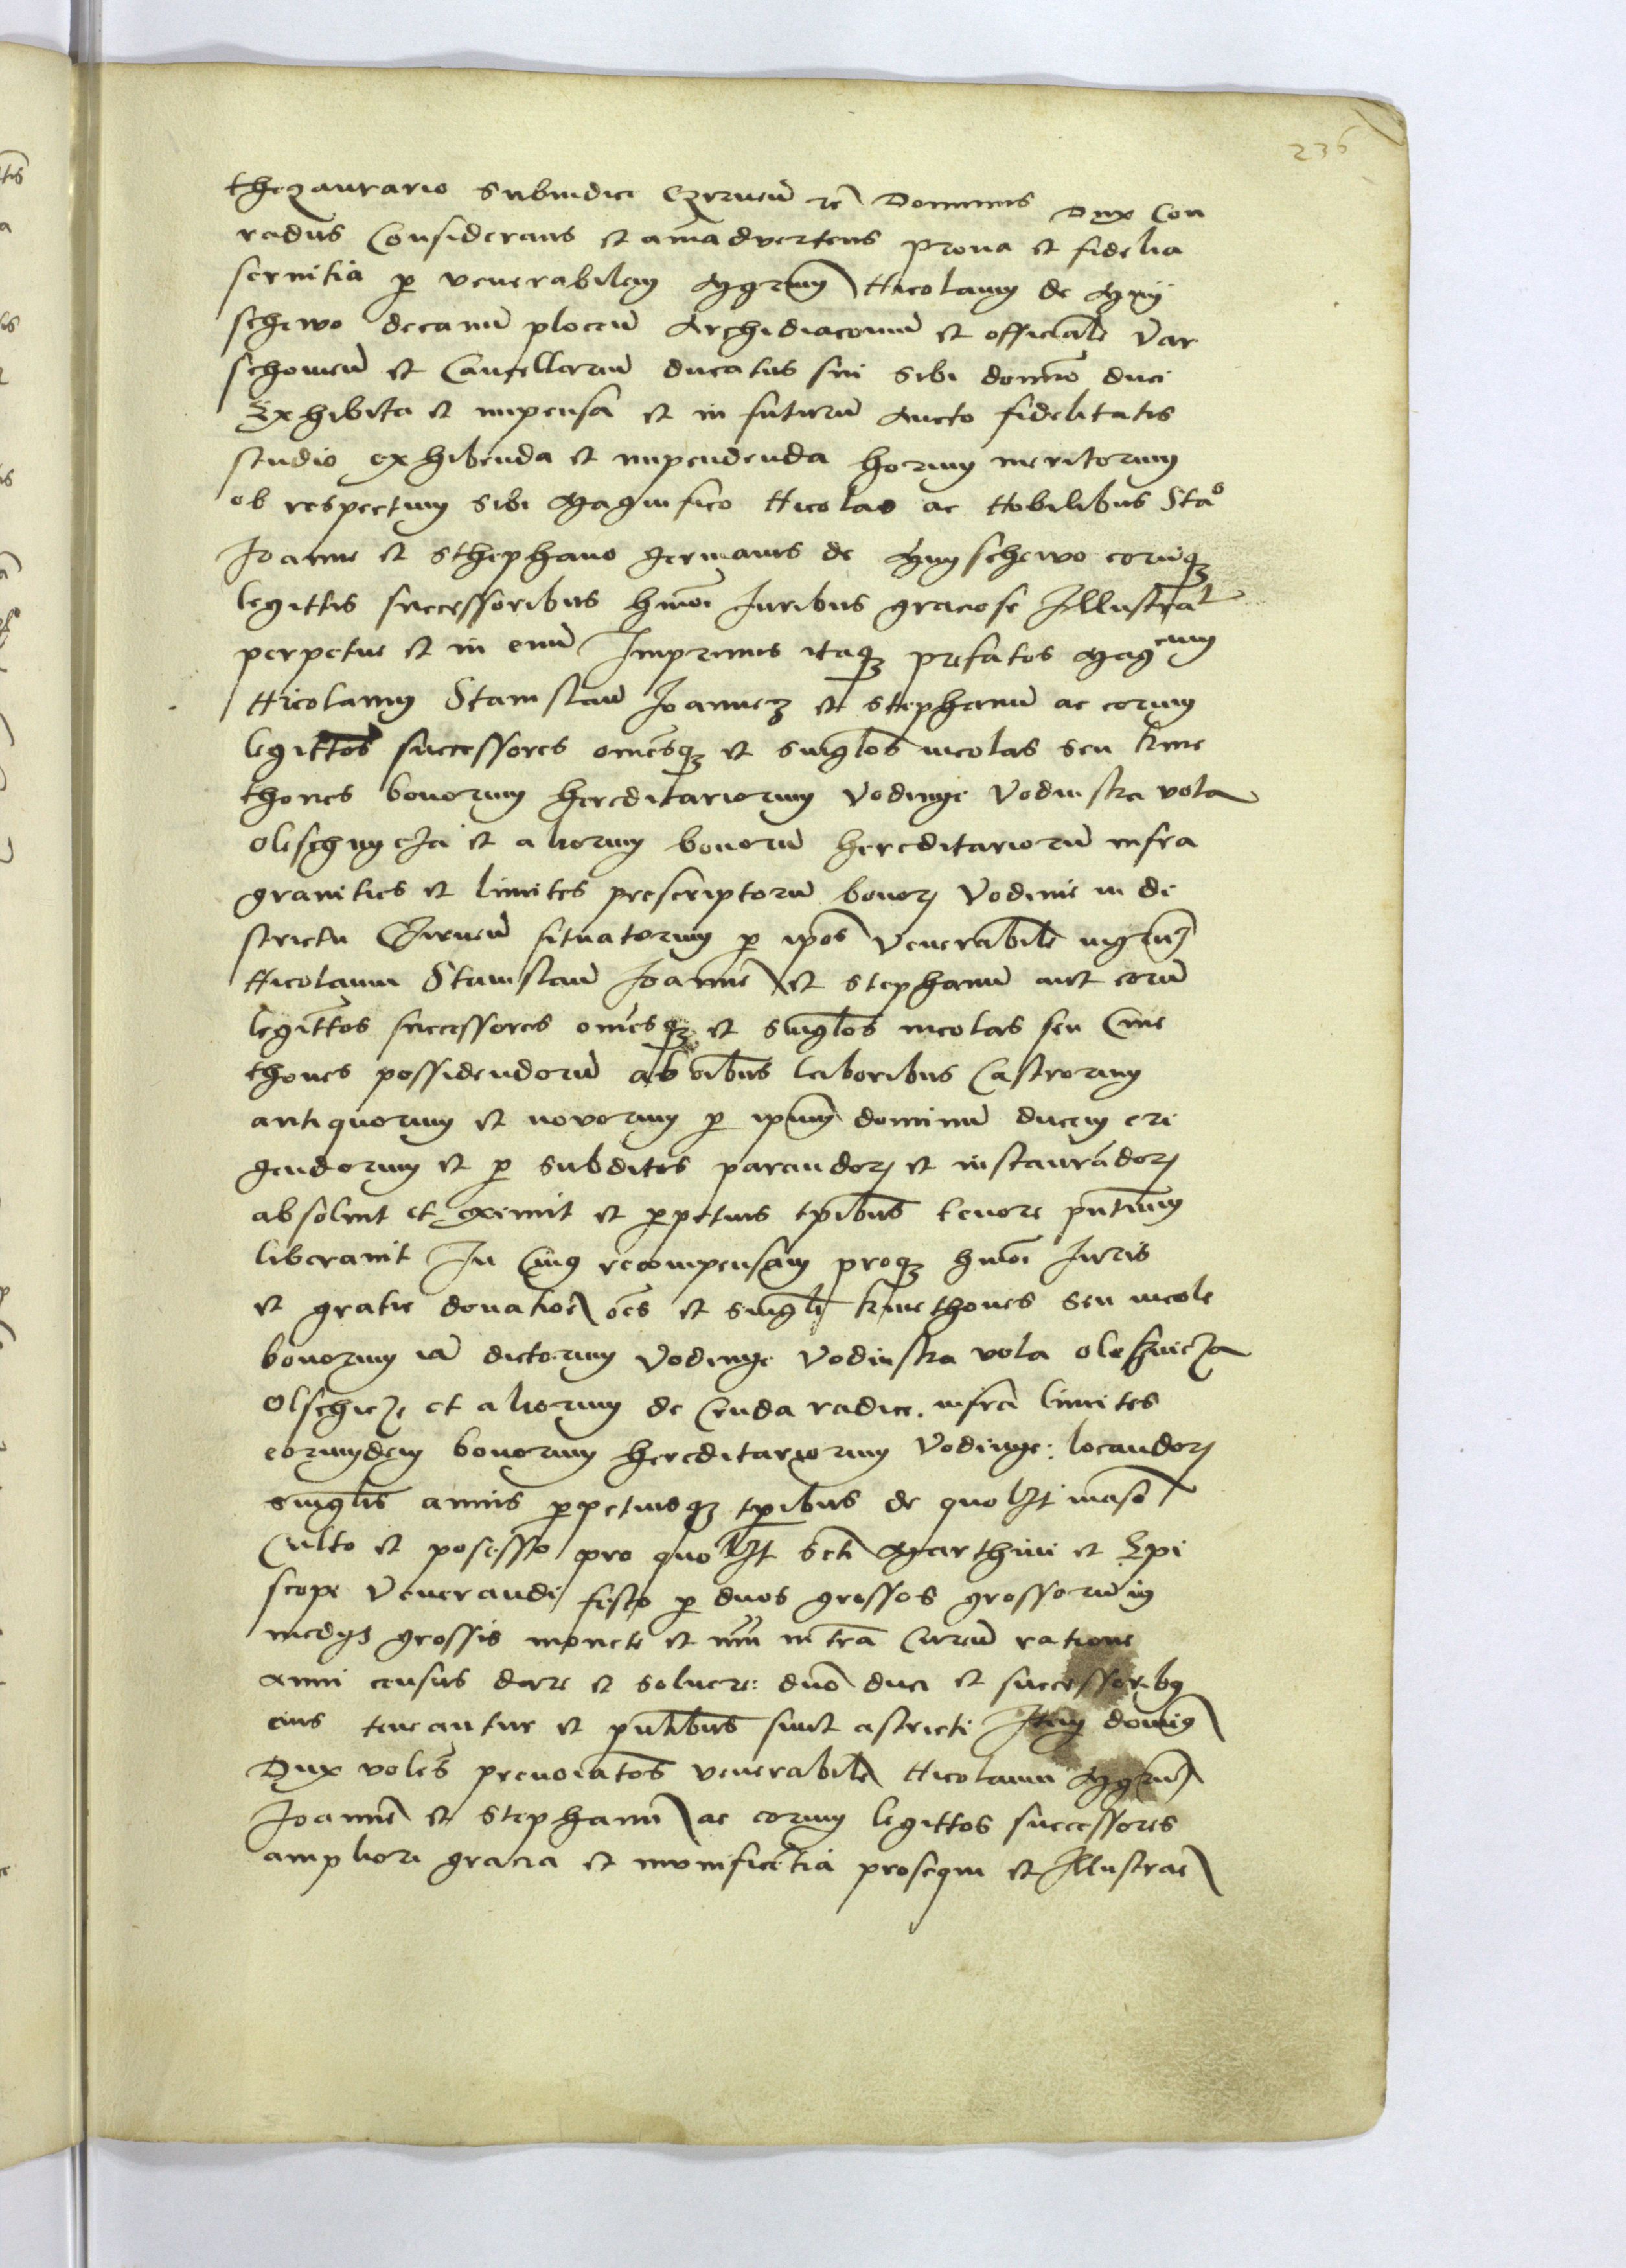 236
thezaurario Subiudice Czrzneñ zc̃ Dominus Dux Con
radus Considerans et aīadvertens prona et fidelia
servitia p venerabilem Mgrum Nicolaum de Myy
schewo decanū ploceñ Archidiaconū et officialē Var
schovieñ et Cancellariū ducatus sui sibi domino duci
Exhibita et impensa et in futurū Aucto fidelitatis
studio exhibenda et impendenda horum meritorum
ob respectum sibi Magnifico Nicolao ac Nobilibus Stao
Joanne et Sthephano germanis de Mnyschewo eorūq
legittīs successoribus hmōi Iuribus graciose Illustrat
perpetue et in evū Imprimis itaq prefatos Magcum
Nicolaum Stanislaū Joannez et Stephanū ac eorum
legittos successores omēsq et singlos incolas seu kme
thones bonorum hereditariorum Vodinye Vodinska vola
Oleschnycza et aliorum bonorū hereditariorū infra
granities et limites prescriptorū bonorʒ Vodinie in di
strictu Czirneñ situatorum p ip̄os Venerabilē mgrū
Nicolaum Stanislaū Joannē et Stephanū aut eorū
legittos successores omēsq et singlos incolas seu Cme
thones possidendorū ab oībus laboribus Castrorum
antiquorum et novorum p ip̄um dominū ducem eri
gendorum et p subditos parandorʒ et instaurādorʒ
absolvit et exemit et ppetuis tpībus tenore pn̄tium
liberavit In Cuius recompensam proq hmōi Iuris
et gratie donatiōe oēs et singli kmethones seu incole
bonorum iā dictorum Vodinye Vodinska vola Olesznicza
Olschicze et aliorum de Cruda radice infra limites
eorumdem bonorum hereditariorum Vodinye: locandorʒ
singlis annis ppetuisq tpībus de quolzt manso
Culto et posesso pro quolzt Scti Marthini et Epi
scopi Venerandi festo p duos grossos grossorū in
medys grossis monete et nūi in trā Cureñ ratione
Anni census dare et solvere: dnō duci et successoribus
eius teneantur et pn̄tibus sint astricti Item dominus
Dux volēs prenoiatos venerabilē Nicolaum Mgrum
Joannē et Stephanū ac eorum legittos successores
ampliori gracia et munificētia prosequi et Illustrare